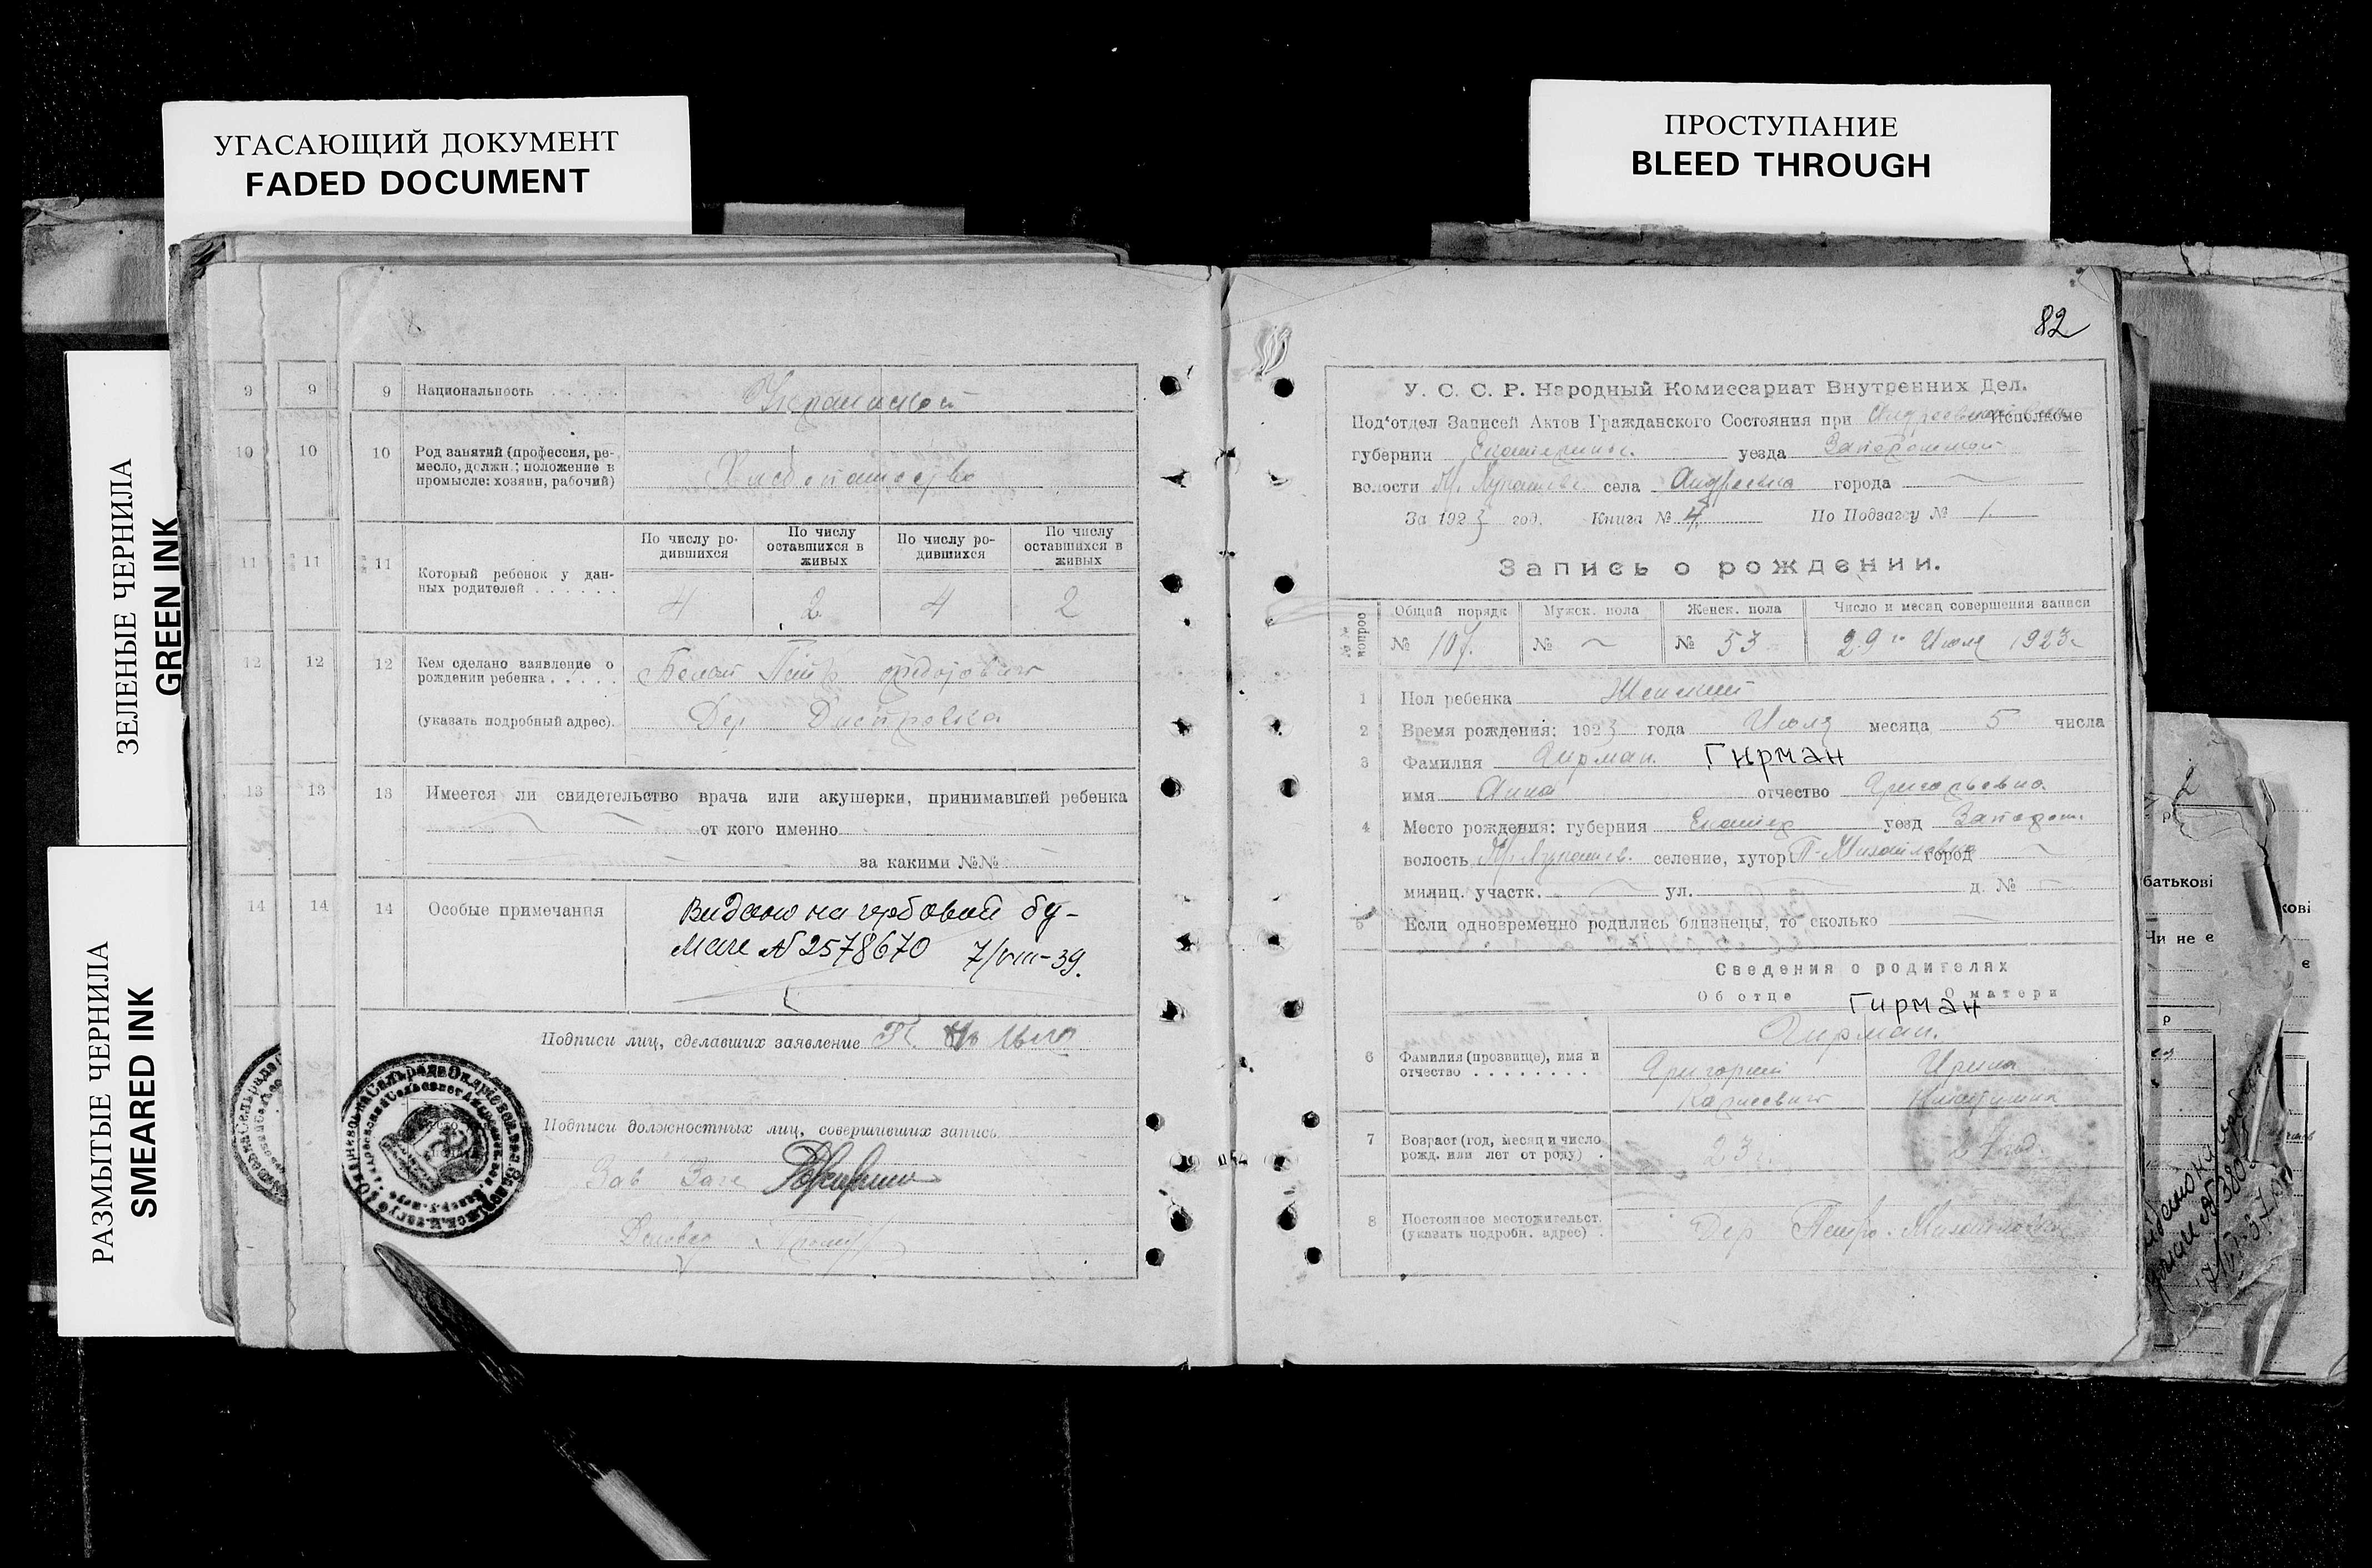 УГАСАЮЩИЙ ДОКУМЕНТ
FADED DOCUMENT
ПРОСТУПАНИЕ
BLEED THROUGH
ЗЕЛЕНЫЕ ЧЕРНИЛА
GREEN INK
РАЗМЫТЫЕ ЧЕРНИЛА
SMEARED INK
9 9 9 Национальность
10 10 10 Род занятий (профессия, ре-
месло, должн.; положение в
промысле: хозяин, рабочий)
Хлебопашество
11 11 11 Который ребенок у дан-
ных родителей
По числу ро-
дившихся
По числу
оставшихся в
живых
По числу ро-
дившихся
По числу
оставшихся в
живых
4 2 4 2
12 12 12 Кем сделано заявление о
рождении ребенка
Петр
(указать подробный адрес). Дер
13 13 13 Имеется ли свидетельство врача или акушерки, принимавшей ребенка
от кого именно
за какими №№
14 14 14 Особые примечания
Видано на гербовой бу-
маге № 2578670 7/VIII-39.
Подписи лиц, сделавших заявление
Подписи должностных лиц, совершивших запись
Зав Загс
82
У. С. С. Р. Народный Комиссариат Внутренних Дел.
Под'отдел Записей Актов Гражданского Состояния при Исполкоме
губернии Екатеринос. уезда
волости села Андреевка города
За 1923 год. Книга № 4 По Подзагсу № 1.
Запись о рождении.
Общий порядк Мужск. пола Женск. пола Число и месяц совершения записи
№ 107. № № 53 29го Июля 1923г
1 Пол ребенка Женский
2 Время рождения: 1923 года Июля месяца 5 числа
3 Фамилия Гирман. Гирман
имя Анна отчество Григорьевна.
4 Место рождения: губерния Екатер уезд Запорож.
волость селение, хутор П-Михайловка город
милиц. участк. ул. д. №
5 Если одновременно родились близнецы, то сколько
Сведения о родителях
Об отце О матери
Гирман
Гирман.
6 Фамилия (прозвище), имя и
отчество
Григорий Ирина
7 Возраст (год, месяц и число
рожд. или лет от роду)
23
8 Постоянное местожительст.
(указать подробн. адрес)
Дер Петро-Михайловка
батькові
Чи не є